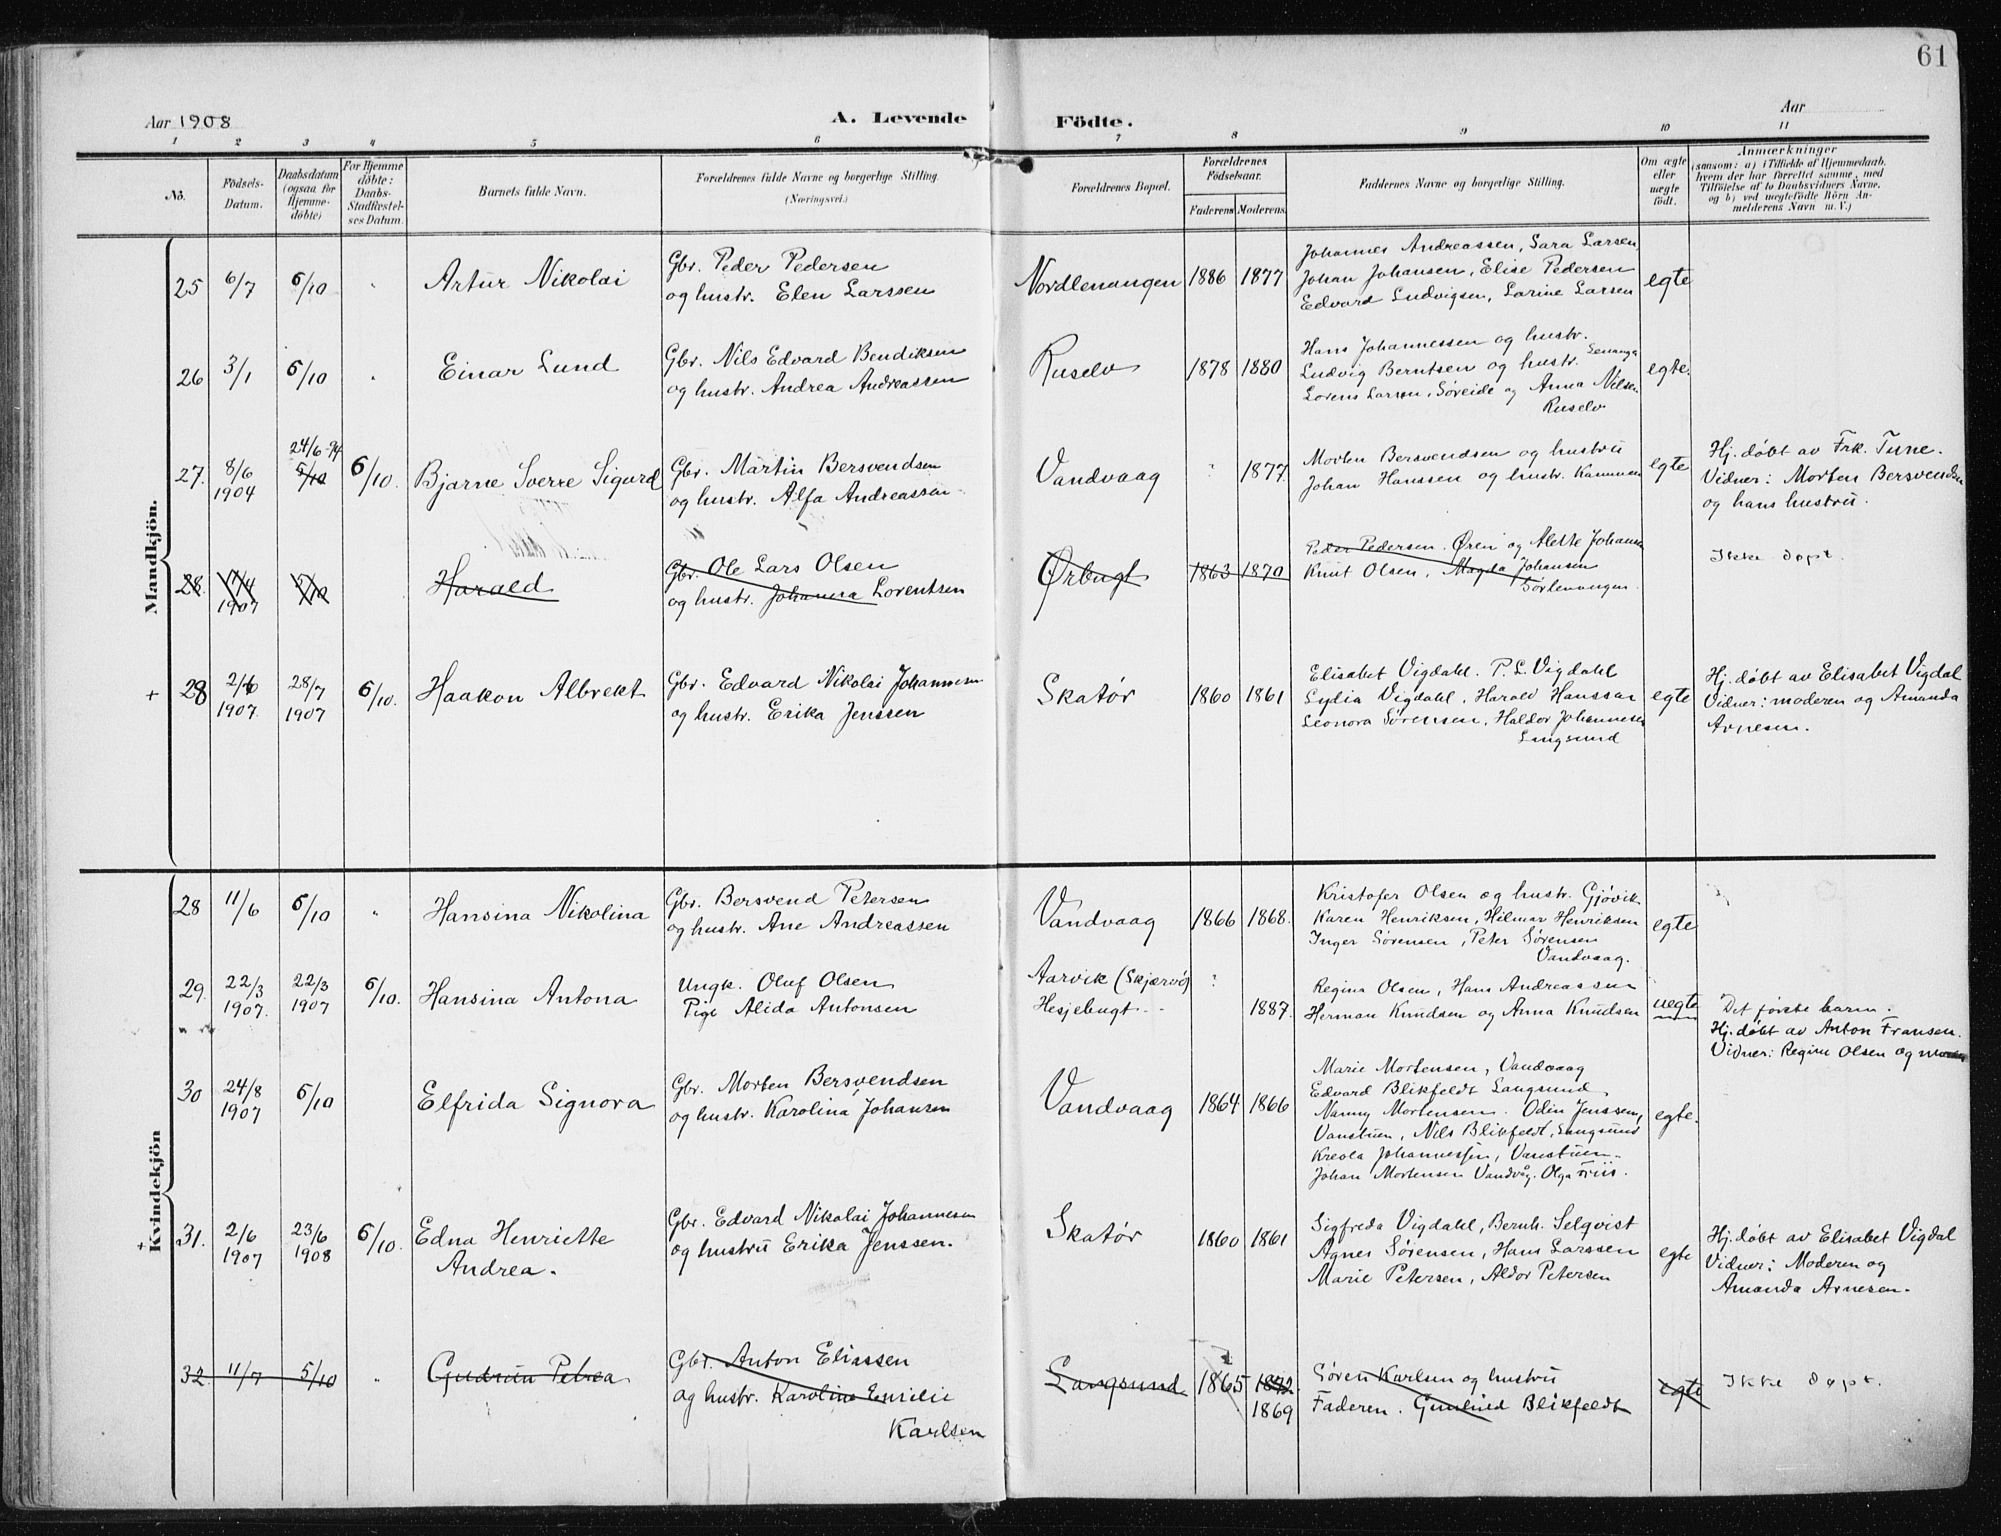 61
Aar 1908
A. Levende
Födte.
Aar
1 2 3 4 5 6 7 8 9 10 11
No.
Födsels-
Datum.
Daabsdatum
(ogsaa for
Hjemme-
döbte)
For Hjemme
döbte:
Daabs-
Stadfæstel-
ses Datum.
Barnets fulde Navn.
Forældrenes fulde Navne og borgerlige Stilling.
(Næringsvei.)
Forældrenes Bopæl.
Forældrenes
Födselsaar.
Faderens Moderens.
Faddernes Navne og borgerlige Stilling.
Om ægte
eller
uægte
födt.
Anmærkninger
(saasom: a) i Tilfælde af Hjemmedaab.
hvem der har forrettet samme, med
Tilföielse af to Daabsvidners Navne.
og b) ved uægtefödte Börn An-
melderens Navn m. V.)
Mandkjön.
25 6/7 5/10 " Artur Nikolai
Gbr. Peder Pedersen
og hustr. Elen Larssen
Nordlenangen 1886 1877
Johannes Andreassen, Sara Larsen
Johan Johansen, Elise Pedersen
Edvard Ludvigsen, Larine Larsen
egte
26 3/1 5/10 " Einar Lund
Gbr. Nils Edvard Bendiksen
og hustr. Andrea Andreassen
Ruselv 1878 1880
Hans Johannessen og hustr.
Ludvig Berntsen og hustr. Lenanga
Lorens Larsen, Søreide og Anna Nilsen
Ruselv
egte.
27. 8/6
1904
24/6-94
5/10
6/10. Bjarne Sverre Sigurd
Gbr. Martin Bersvendsen
og hustr. Alfa Andreassen
Vandvaag " 1877
Morten Bersvendsen og hustru
Johan Hanssen og hustr. Kammen
egte
Hj. døbt av Frk. Tune.
Vidner: Morten Bersvendsen
og hans hustru.
28. 17/4
1907
5/10
Harald
Gbr. Ole Lars Olsen
og hustr. Johanna Lorentsen
Ørbugt 1863 1870
Peder Pedersen. Øren og Alette Johansen
Knut Olsen, Magda Johansen
Sørlenangen
Ikke døpt.
+ 28 2/6
1907.
28/7
1907
6/10. Haakon Albrekt
Gbr. Edvard Nikolai Johannesen
og hustr. Erika Jenssen
Skatør 1860 1861
Elisabet Vigdahl. P. L. Vigdahl
Lydia Vigdahl, Harald Hanssen
Leonora Sørensen, Haldor Johannesen
Langsund
egte
Hj. døbt av Elisabet Vigdal
Vidner: moderen og Amanda
Arnesen.
+ Kvindekjön
28 11/6 5/10 " Hansina Nikolina
Gbr. Bersvend Petersen
og hustr. Ane Andreassen
Vandvaag 1866 1868.
Kristofer Olsen og hustr. Gjøvik
Karen Henriksen, Hilmar Henriksen
Inger Sørensen, Peter Sørensen
Vandvaag.
egte
29. 22/3
1907.
22/3
1907
6/10. Hansina Antona
Ungk. Oluf Olsen
Pige Alida Antonsen
Aarvik (Skjærvø)
Hesjebugt
? 1887.
Regina Olsen, Hans Andreassen
Herman Knudsen og Anna Knudsen
uegte
Det første barn.
Hj. døbt av Anton Fransen.
Vidner: Regine Olsen og moren
30 24/8
1907
5/10
Elfrida Signora
Gbr. Morten Bersvendsen
og hustr. Karolina Johansen
Vandvaag 1864 1866
Marie Mortensen, Vandvaag
Edvard Blikfeldt Langsund
Nanny Mortensen. Odin Jenssen,
Vanstuen, Nils Blikfeldt, Langsund
Kreola Johannessen, Vanstuen.
Johan Mortensen Vandvåg. Olga Friis.
egte.
31. 2/6
1907
23/6
1908
6/10. Edna Henriette
Andrea.
Gbr. Edvard Nikolai Johannesen
og hustru Erika Jenssen.
Skatør 1860 1861
Sigfreda Vigdahl, Bernh. Selqvist
Agnes Sørensen, Hans Larssen
Marie Petersen, Aldor Petersen
egte
Hj. døbt av Elisabet Vigdal
Vidner: Moderen og
Amanda Arnesen.
32. 11/7 5/10 " Gudrun Petrea
Gbr. Anton Eliassen
og hustr. Karoline Emilie
Karlsen
Langsund 1865 1872.
1869
Søren Karlsen og hustru
Faderen. Gunhild Blikfeldt
egte
Ikke døpt.